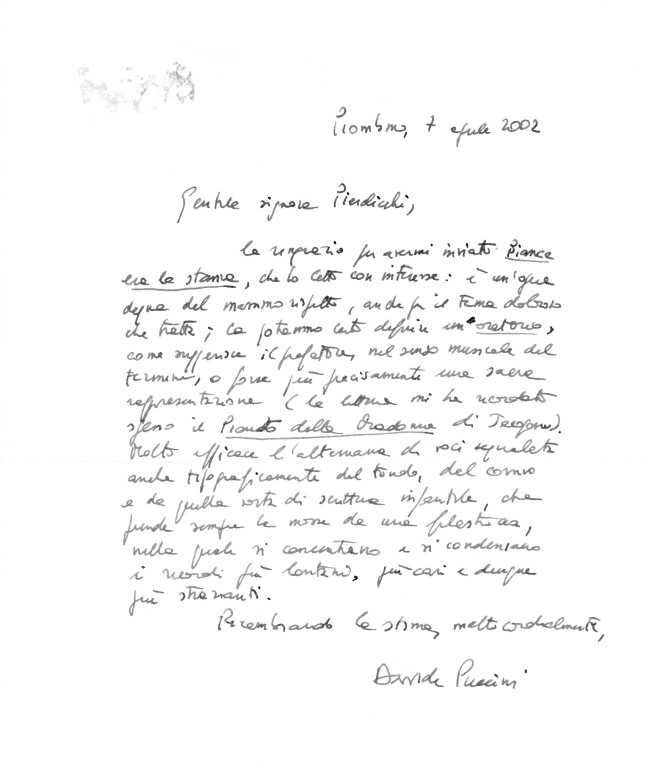 Piombino, 7 aprile 2002
Gentile signora Pierdicchi,
la ringrazio per avermi inviato Bianca
era la stanza, che ho letto con interesse: è un'opera
degna del massimo rispetto, anche per il tema doloroso
che tratta; la potremmo certo definire un "oratorio",
come suggerisce il prefatore, nel senso musicale del
termine, o forse più precisamente una sacra
rappresentazione (la lettura mi ha ricordato
spesso il Pianto della Madonna di Jacopone).
Molto efficace l'alternanza di voci segnalata
anche tipograficamente dal tondo, dal corsivo
e da quella sorta di scrittura infantile, che
prende sempre le mosse da una filastrocca,
nella quale si concentrano e si condensano
i ricordi più lontani, più cari e dunque
più strazianti.
Ricambiando la stima, molto cordialmente,
Davide Puccini